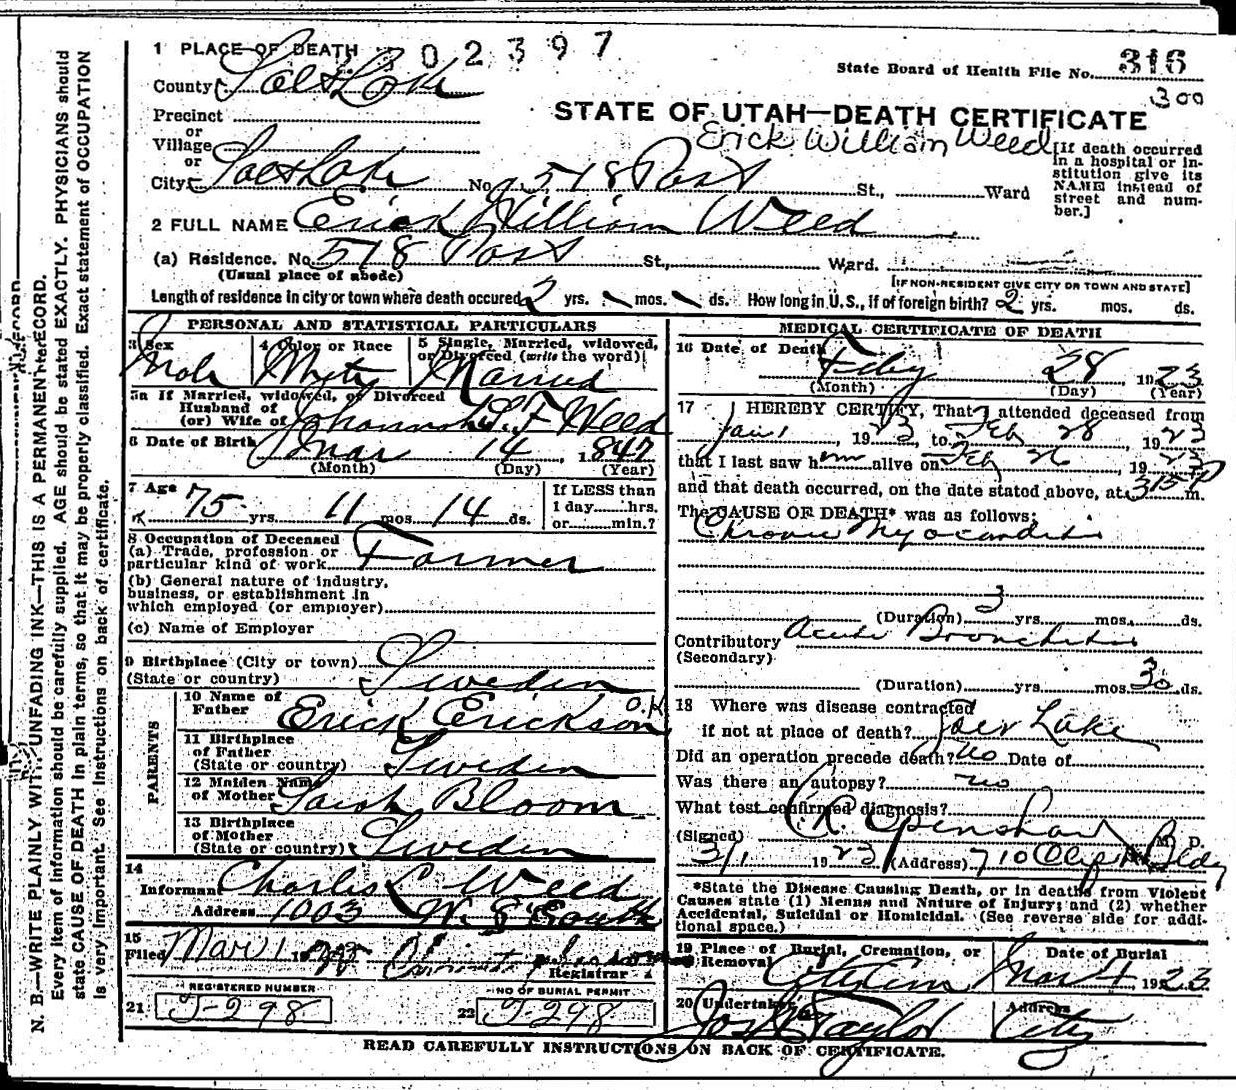 1 PLACE OF DEATH 2302397
State Board of Health File No. 316
300
County Salt Lake
Precinct
or
Village
or
City Salt Lake No. 518 Post St., Ward
STATE OF UTAH—DEATH CERTIFICATE
Erick William Weed
[If death occurred in a hospital or institution give its NAME instead of street and number.]
2 FULL NAME Erick William Weed
(a) Residence. No. 518 Post St., Ward.
(Usual place of abode)
[IF NON-RESIDENT GIVE CITY OR TOWN AND STATE]
Length of residence in city or town where death occured 2 yrs. mos. ds. How long in U.S., if of foreign birth? 2 yrs. mos. ds.
PERSONAL AND STATISTICAL PARTICULARS
3 Sex 4 Color or Race 5 Single, Married, widowed, or Divorced (write the word)
Male White Married
5a If Married, widowed, or Divorced
Husband of
(or) Wife of Weed
6 Date of Birth Mar 14 1847
(Month) (Day) (Year)
7 Age 75 yrs. 11 mos. 14 ds.
If LESS than
1 day hrs.
or min.?
8 Occupation of Deceased
(a) Trade, profession or
particular kind of work Farmer
(b) General nature of industry,
business, or establishment in
which employed (or employer)
(c) Name of Employer
9 Birthplace (City or town)
(State or country) Sweden
PARENTS
10 Name of
Father Erick Erickson O.K.
11 Birthplace
of Father
(State or country) Sweden
12 Maiden Name
of Mother Bloom
13 Birthplace
of Mother
(State or country) Sweden
14
Informant Charles L Weed
Address 1003 W. South
15
Filed Mar 1 19
Registrar
REGISTERED NUMBER
21 J-298
NO OF BURIAL PERMIT
22 J-298
MEDICAL CERTIFICATE OF DEATH
16 Date of Death Feby 28 1923
(Month) (Day) (Year)
17 I HEREBY CERTIFY, That I attended deceased from
Jan 1, 1923, to Feb 28, 1923
that I last saw him alive on Feb 26, 1923
and that death occurred, on the date stated above, at 315 P m.
The CAUSE OF DEATH* was as follows:
Chronic Myocarditis
(Duration) 3 yrs. mos. ds.
Contributory Acute Bronchitis
(Secondary)
(Duration) yrs. mos. 30 ds.
18 Where was disease contracted
if not at place of death? Lake
Did an operation precede death? no Date of
Was there an autopsy? no
What test confirmed diagnosis?
(Signed) Openshaw M. D.
3/1 1923 (Address) 710 Bldg
*State the Disease Causing Death, or in deaths from Violent
Causes state (1) Means and Nature of Injury; and (2) whether
Accidental, Suicidal or Homicidal. (See reverse side for additional space.)
19 Place of Burial, Cremation, or
Removal City Cem
Date of Burial
Mar 4, 1923
20 Undertaker Taylor
Address City
READ CAREFULLY INSTRUCTIONS ON BACK OF CERTIFICATE.
N. B.—WRITE PLAINLY WITH UNFADING INK—THIS IS A PERMANENT RECORD.
Every item of information should be carefully supplied. AGE should be stated EXACTLY. PHYSICIANS should
state CAUSE OF DEATH in plain terms, so that it may be properly classified. Exact statement of OCCUPATION
is very important. See instructions on back of certificate.